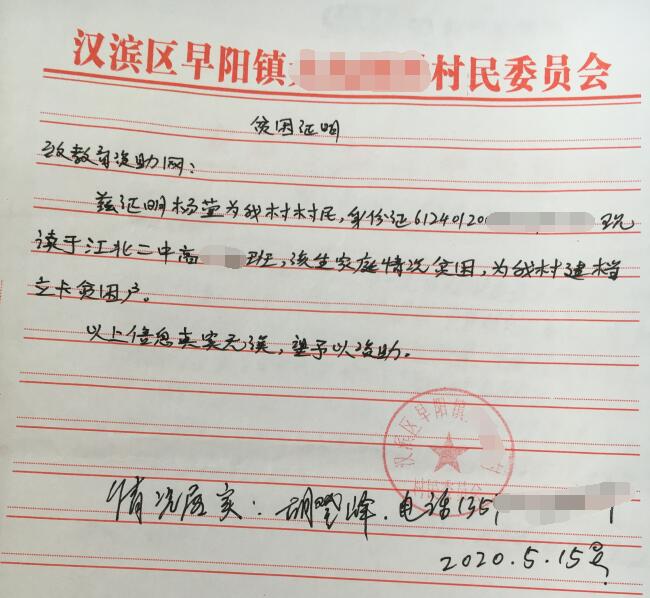 汉滨区早阳镇 村民委员会
贫困证明
致教育资助网：
兹证明杨萱为我村村民，身份证612401200 现
读于江北二中高 班，该生家庭情况贫困，为我村建档
立卡贫困户。
以上信息真实无误，望予以资助。
汉滨区早阳镇
村民委员会
情况属实：胡 峰，电话135
2020.5.15号